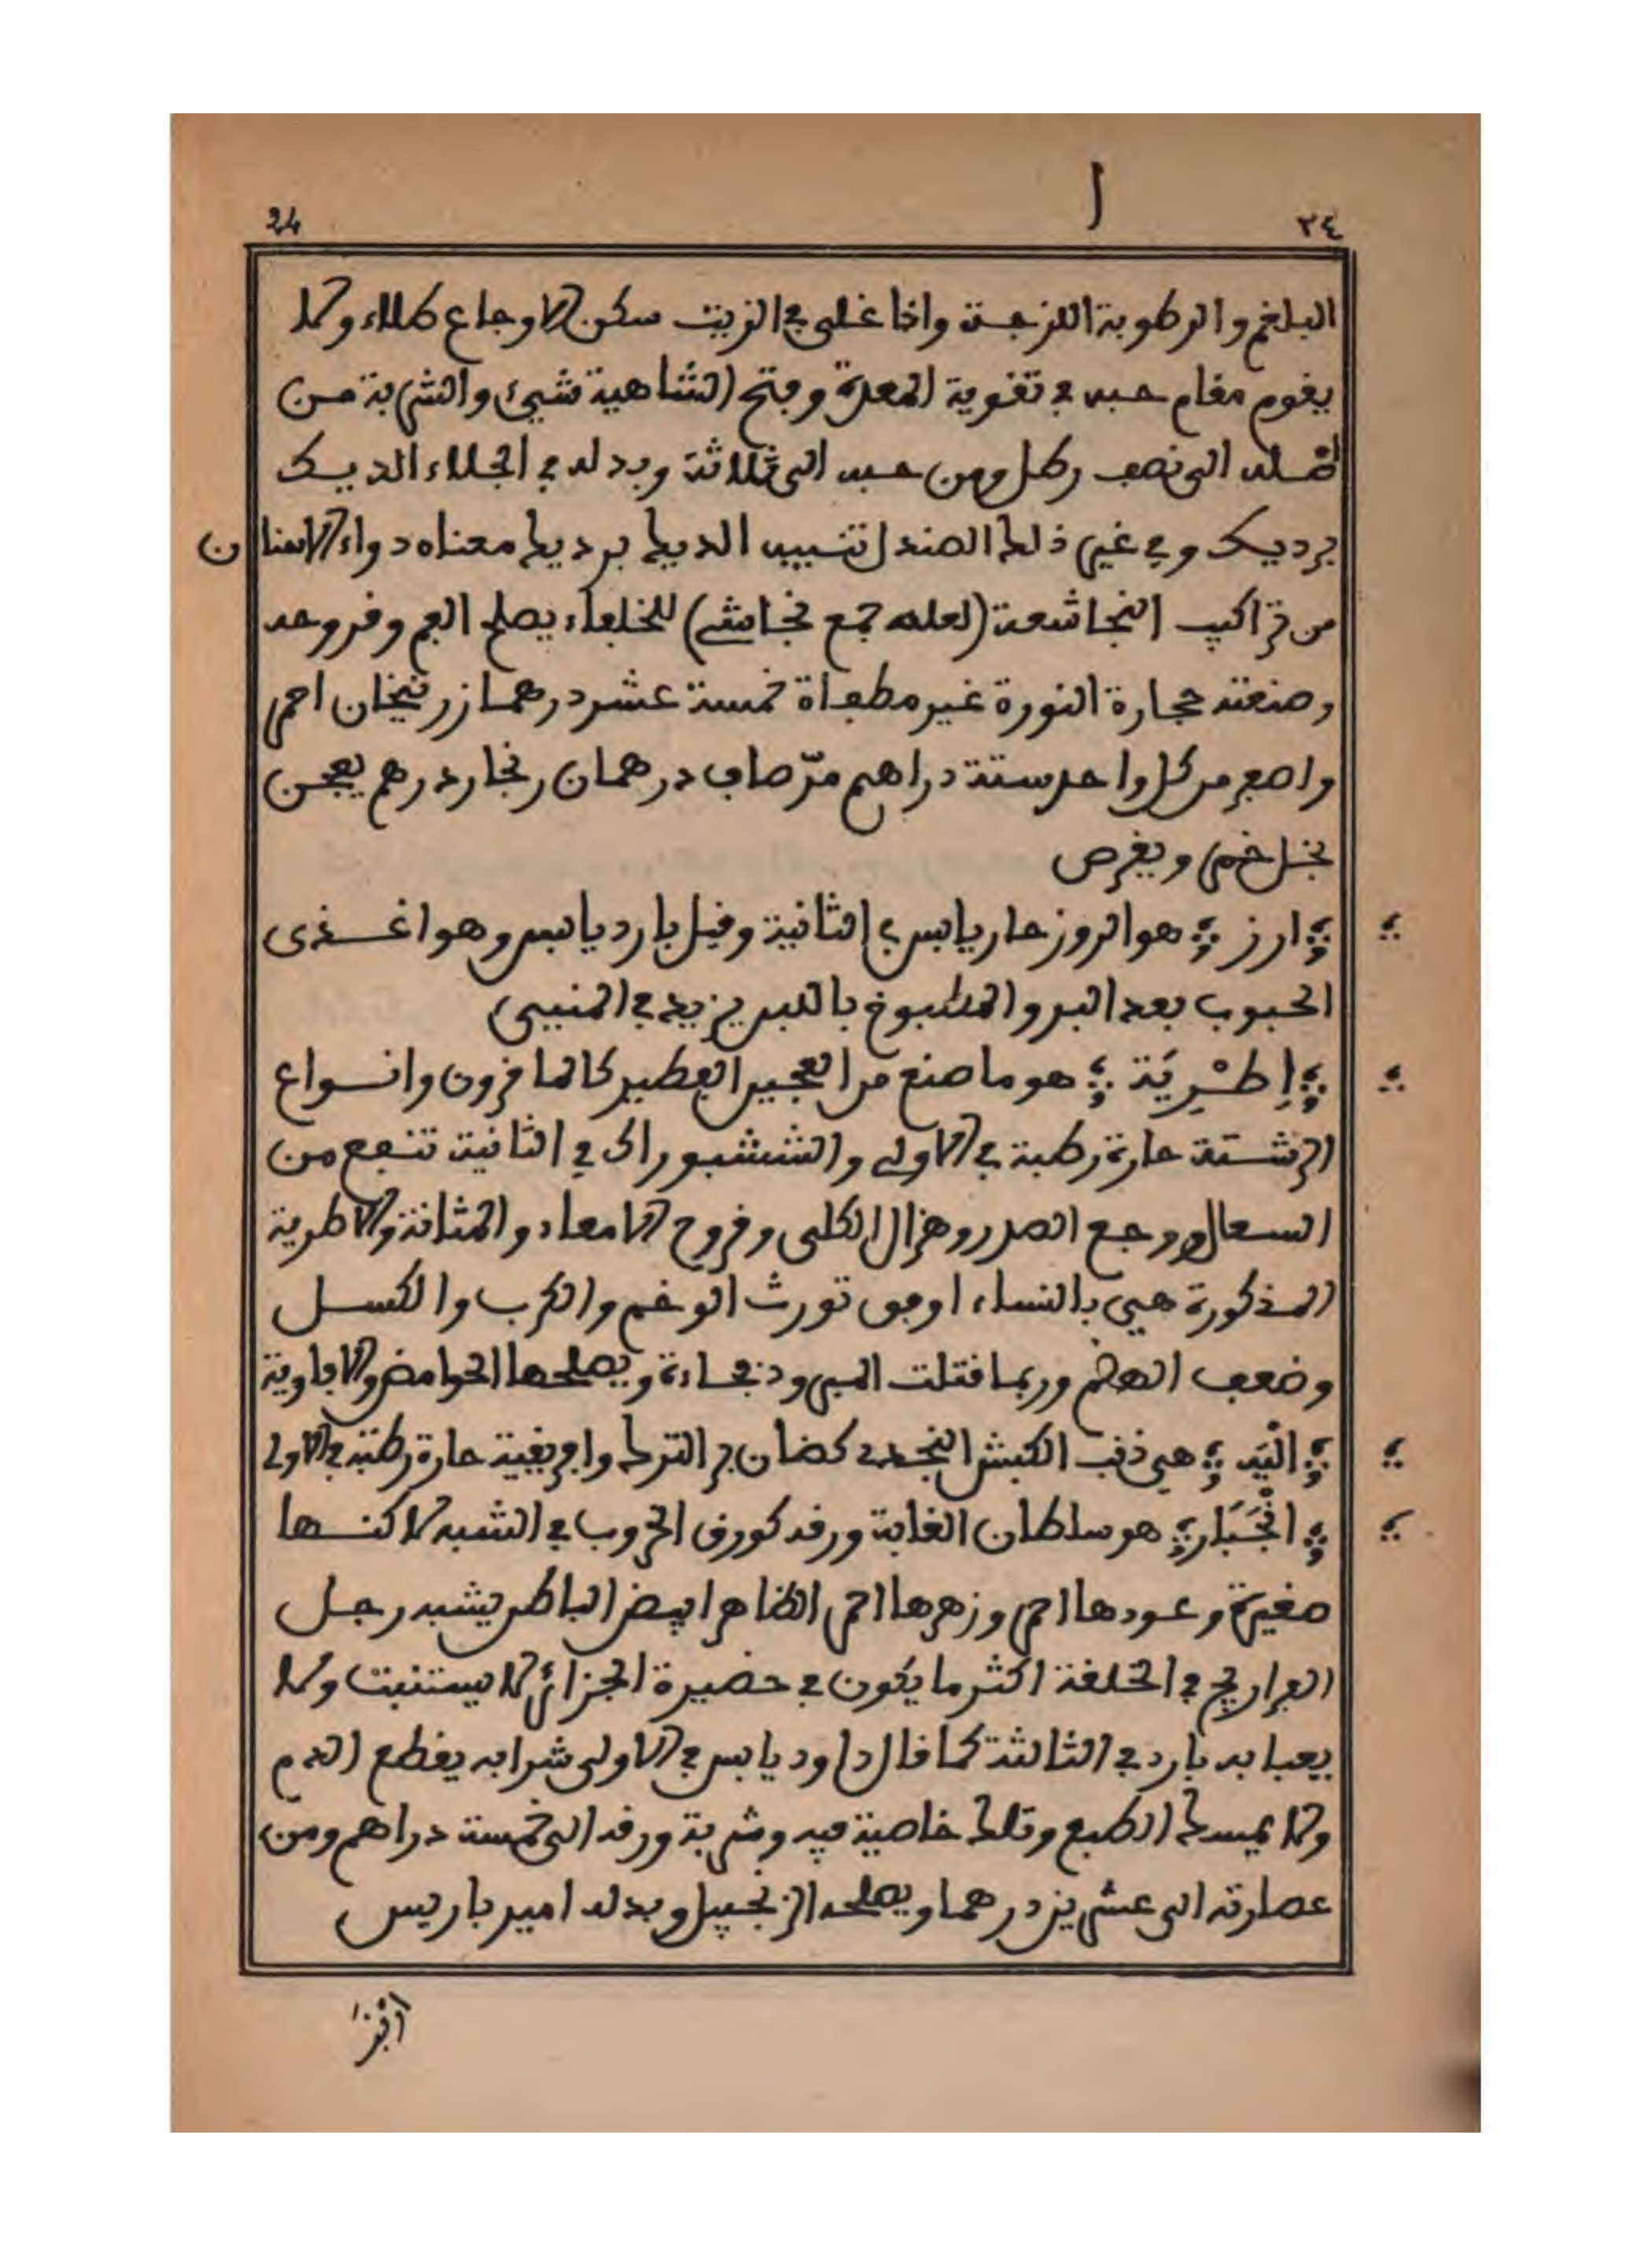 ٢٤
ا
24
البلغم والرطوبة اللزجة واذا غلى في الزيت سكن الاوجاع طلاء ولا
يقوم مقام حبه في تقوية المعدة وفتح الشاهية شيئ والشربة من
اصله الى نصف رطل ومن حبه الى ثلاثة وبدله في الجلاء الديك
برديك وفي غير ذلك الصندل تنبيه الديك برديك معناه دواء الاسنان
من تراكيب النجاشعة (لعله جمع نجاشي) للخلفاء يصلح الفم وقروحه
وصنعته حجارة النورة غير مطفاة خمسة عشر درهما زرنيخان احمر
واصفر من كل واحد ستة دراهم مرّ صاف درهمان زنجار درهم يعجن
بخل خمر ويقرص
ارز هو الروز حار يابس في الثانية وقيل بارد يابس وهو اغذى
الحبوب بعد البر والمطبوخ باللبن يزيد في المني
اِطْرِيَة هو ما صنع من العجين الفطير كالمافرون وانواع
الرشتة حارة رطبة في الاولى والششبوراك في الثانية تنفع من
السعال ووجع الصدر وهزال الكلى وقروح الامعاء والمثانة والاطرية
المذكورة هي بالنساء اوفق تورث الوخم والكرب والكسل
وضعف الهضم وربما قتلت المبرود فجاءة ويصلحها الحوامض والافاوية
الْيَه هي ذنب الكبش النجدي كضان بر الترك وافريقية حارة رطبة في الاولى
انْجَبَار هو سلطان الغابة ورقه كورق الخروب في الشبه لاكنها
صغيرة وعودها احمر وزهرها احمر الظاهر ابيض الباطن يشبه رجل
الفراريج في الخلقة اكثر ما يكون في حضيرة الجزائر لا يستنبت ولا
يعبا به بارد في الثالثة كما قال داود يابس في الاولى شرابه يقطع الدم
ولا يمسك الطبع وتلك خاصية فيه وشربة ورقه الى خمسة دراهم ومن
عصارته الى عشرين درهما ويصلحه الزنجبيل وبدله امير باريس